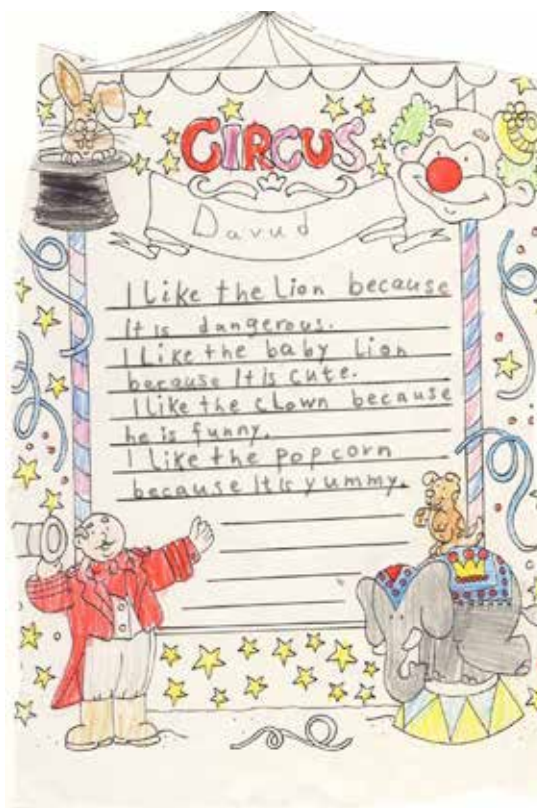 CIRCUS
Davud
I Like the Lion because
It is dangerous.
I Like the baby Lion
because It is cute.
I like the clown because
he is funny.
I Like the popcorn
because It is yummy.